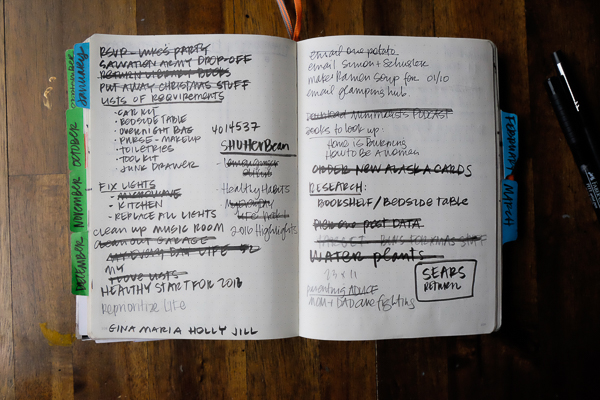 RSVP - MIKE'S PARTY
SALVATION ARMY DROP-OFF
RETURN LIBRARY BOOKS
PUT AWAY CHRISTMAS STUFF
LISTS OF REQUIREMENTS
· CAR KIT
· BEDSIDE TABLE
· OVERNIGHT BAG
· PURSE - MAKEUP
· TOILETRIES
· TOOL KIT
· JUNK DRAWER
4014537
SHUTTERBEAN
- Healthy Habits
2016 Highlights
FIX LIGHTS
- MICROWAVE
- KITCHEN
- REPLACE ALL LIGHTS
clean up music room
clean out GARAGE
MY
I LOVE LISTS
HEALTHY START FOR 2016
Reprioritize Life
GINA MARIA HOLLY JILL
email one potato
email Simon + Schuster
make Ramen Soup for 01/10
email glamping hub.
Download Minimalists Podcast
books to look up:
How to Be a Woman
ORDER NEW ALASKA CARDS
RESEARCH:
BOOKSHELF/BEDSIDE TABLE
post DATA
WATER plants
23 x 11
SEARS
RETURN
parenting ADVICE
MOM + DAD are fighting
January
OCTOBER
NOVEMBER
DECEMBER
FEBRUARY
MARCH